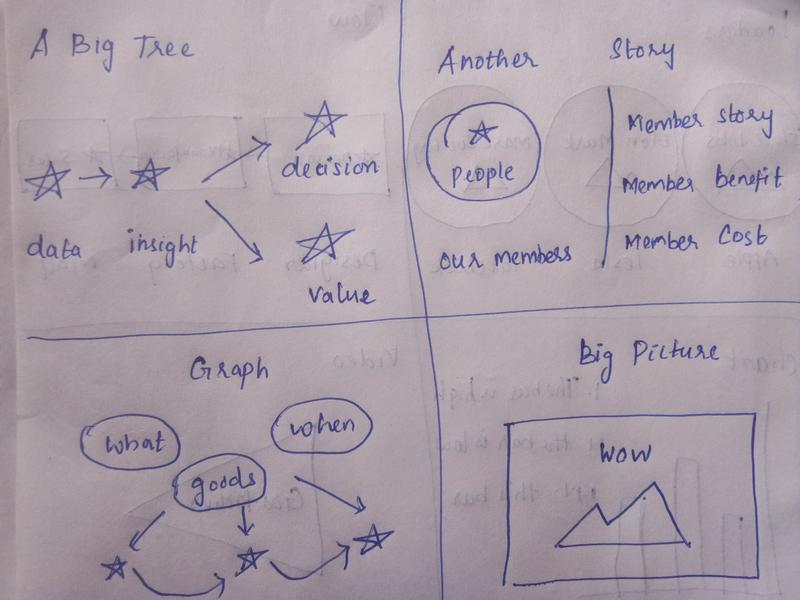 A Big Tree
decision
data insight
value
Another Story
People
our members
Member story
Member benefit
Member Cost
Graph
what
when
goods
Big Picture
WOW